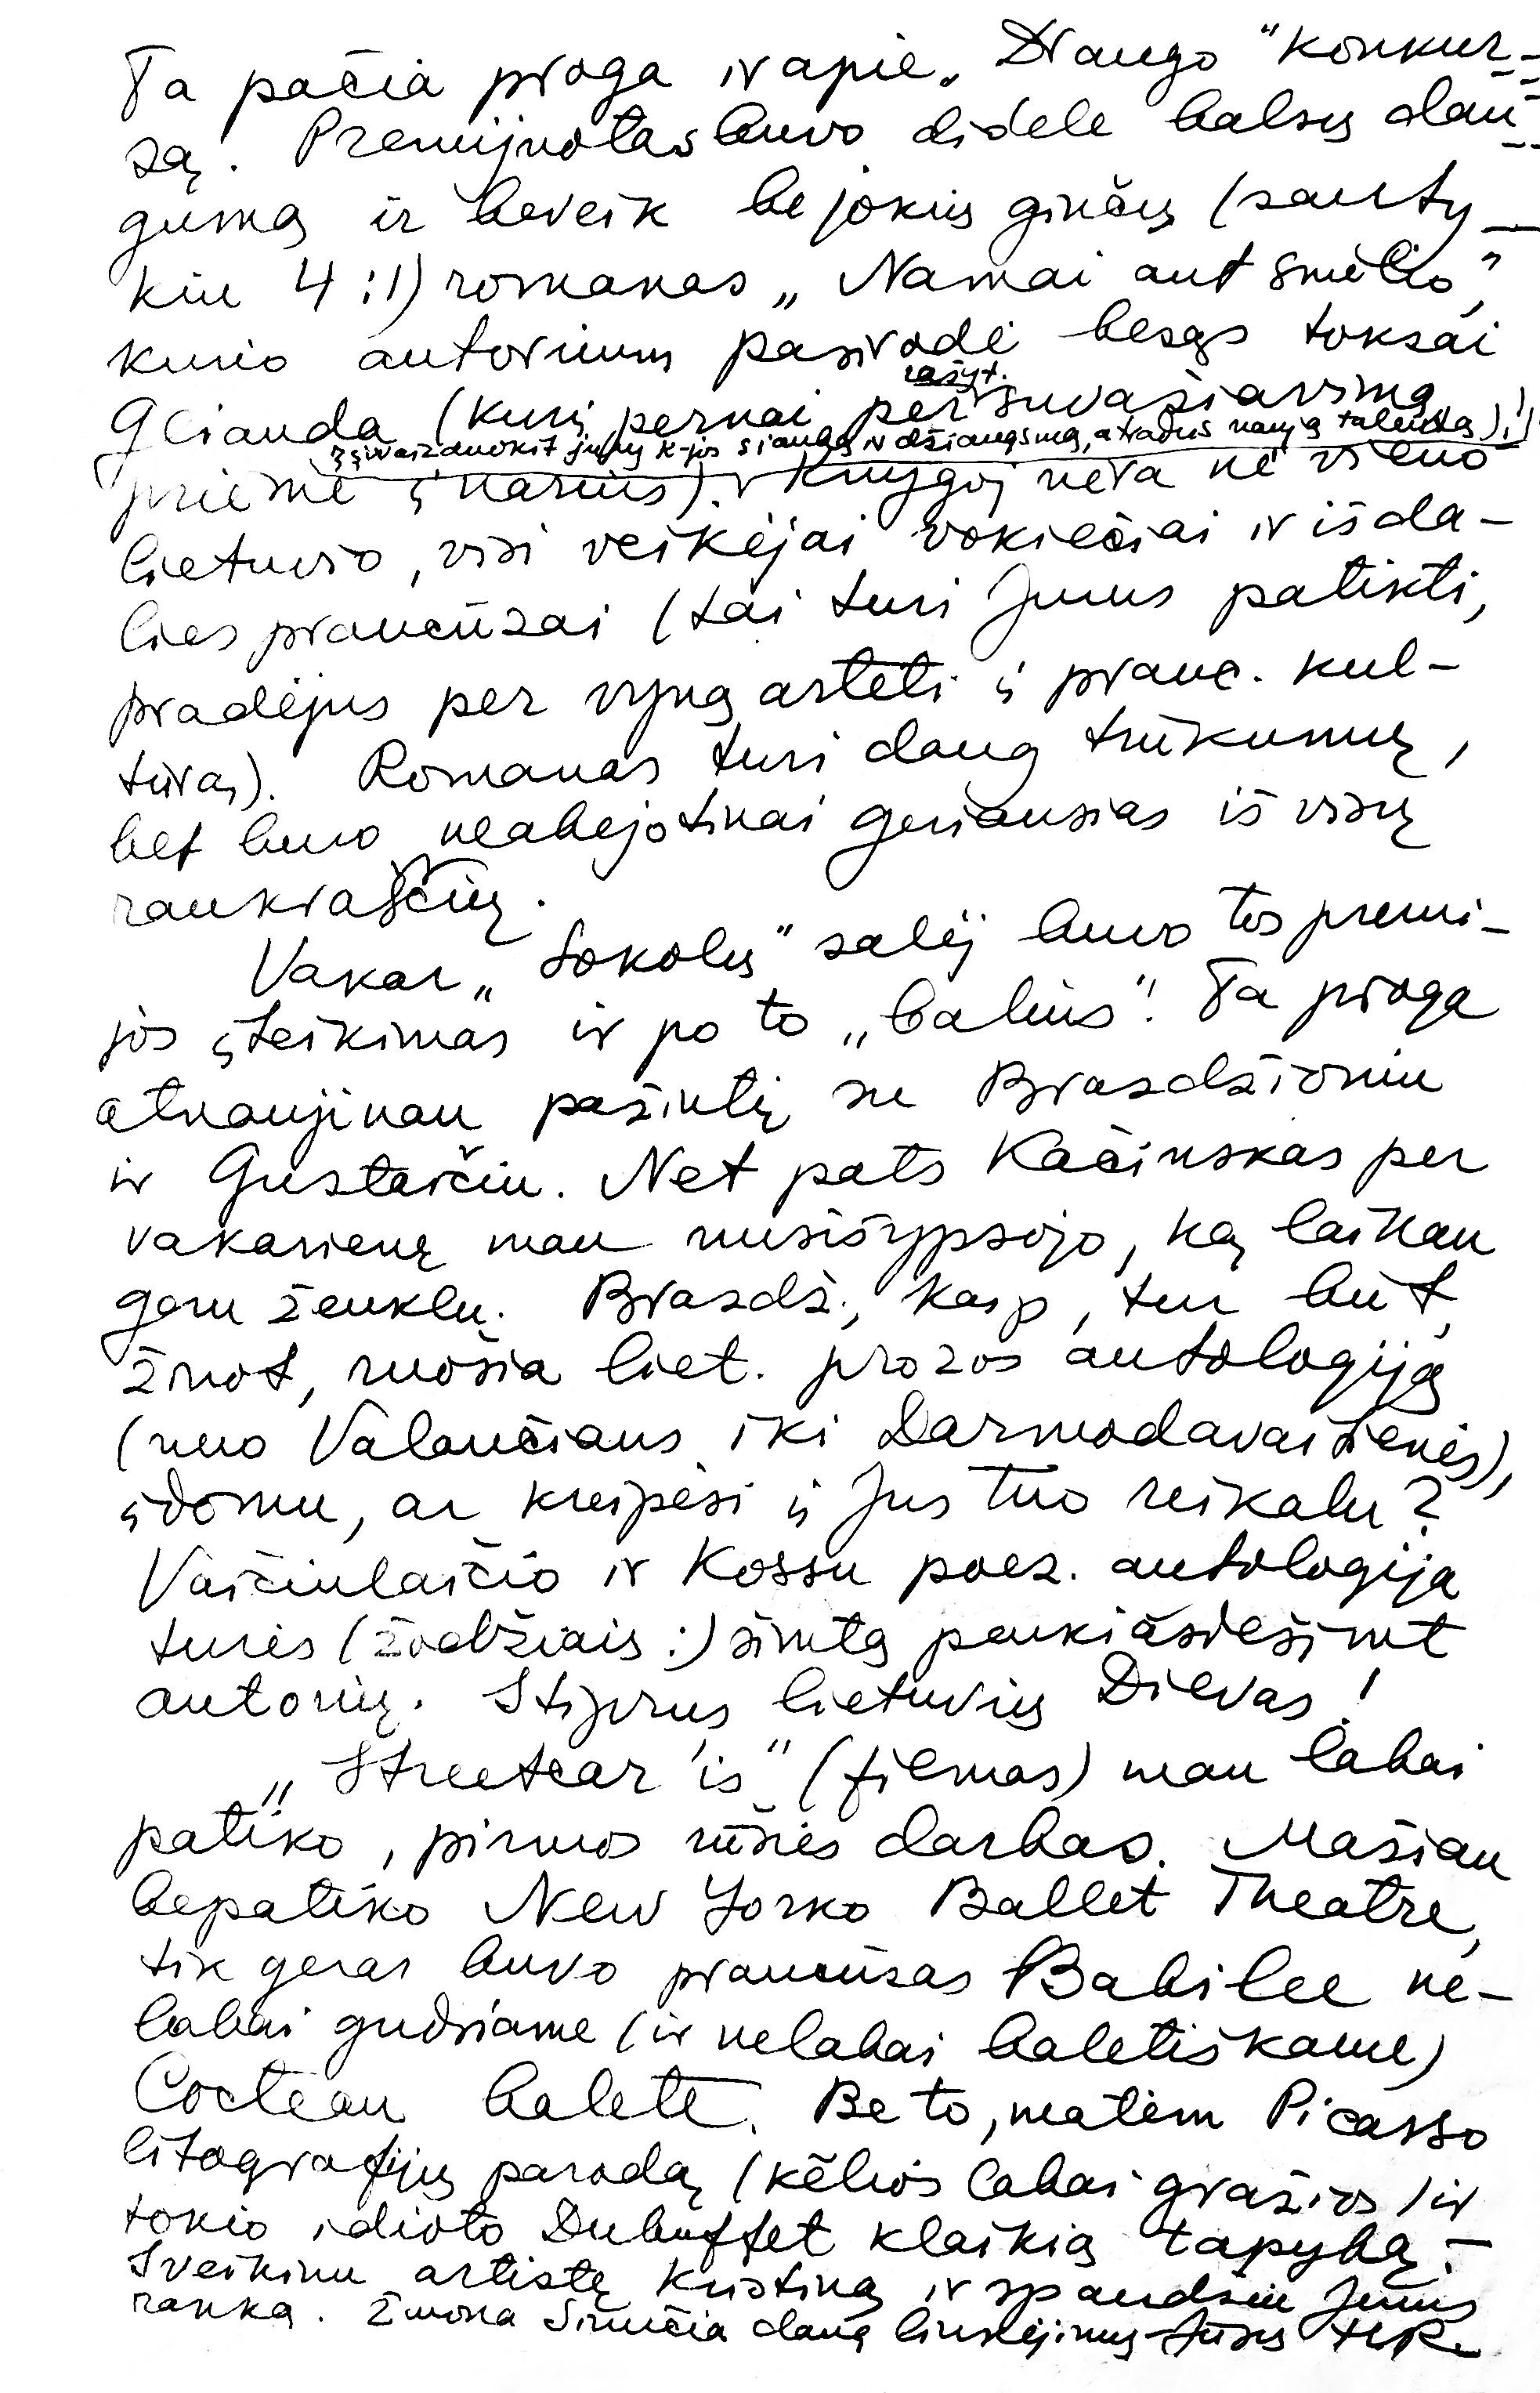 Ta pačia proga ir apie „Draugo" konkur-
są. Premijuotas buvo didele balsų dau-
guma ir beveik be jokių ginčų (santy-
kiu 4:1) romanas „Namai ant smėlio",
kurio autorium pasirodė besąs toksai
rašyt.
Gliauda (kurį pernai per suvažiavimą
įsivaizduokit jury k-jos siaubą ir džiaugsmą, atradus naują talentą)!!
priėmė į narius). Knygoj nėra nė vieno
lietuvio, visi veikėjai vokiečiai ir išda-
lies prancūzai (tai turi Jums patikti,
pradėjus per vyną artėti į pranc. kul-
tūrą). Romanas turi daug trūkumų,
bet buvo neabejotinai geriausias iš visų
rankraščių.
Vakar „Sokolų" salėj buvo tos premi-
jos įteikimas ir po to „balius". Ta proga
atnaujinau pažintį su Brazdžioniu
ir Gustaičiu. Net pats Kačinskas per
vakarienę man nusišypsojo, ką laikau
geru ženklu. Brazdž., kaip, tur būt,
žinot, ruošia liet. prozos antologiją
(nuo Valančiaus iki Darmodavaitienės),
įdomu, ar kreipėsi į Jus tuo reikalu?
Vaičiulaičio ir Kossu poez. antologija
turės (žodžiais:) šimtą penkiasdešimt
autorių. Stiprus lietuvių Dievas!
„Streetcar'is" (filmas) man labai
patiko, pirmos rūšies darbas. Mažiau
bepatiko New Yorko Ballet Theatre,
tik geras buvo prancūzas Babilee ne-
labai gudriame (ir nelabai baletiškame)
Cocteau balete. Be to, matėm Picasso
litografijų parodą (kėlios labai gražios) ir
tokio idioto Dubuffet klaikią tapybą. –
Sveikinu artistę Kristiną ir spaudžiu Jums
ranką. Žmona siunčia daug linkėjimų Jūsų